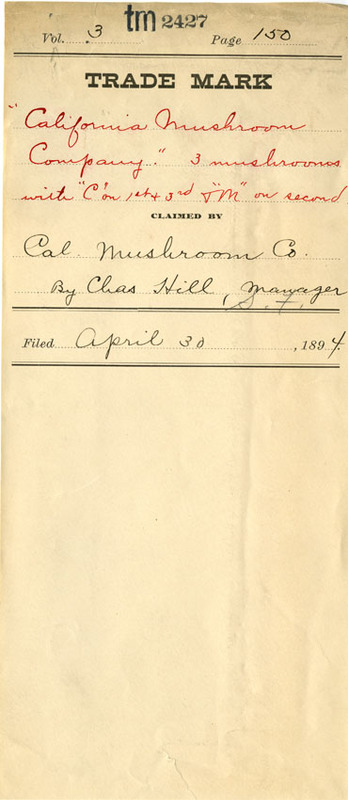 tm 2427
Vol. 3 Page 150
TRADE MARK
"California Mushroom
Company." 3 mushrooms
with "C" on 1st & 3rd & "M" on second
CLAIMED BY
Cal. Mushroom Co.
By Chas Hill, Manager
S. F.
Filed April 30, 1894.